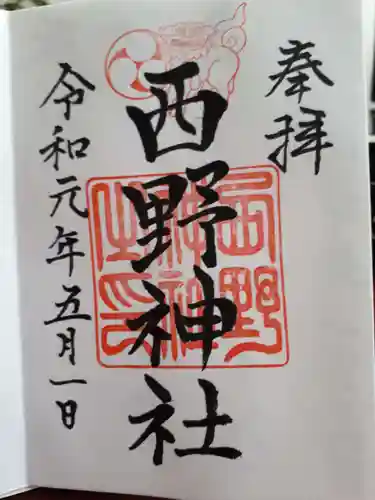 奉拝
西野神社
西野
神社
之印
令和元年五月一日